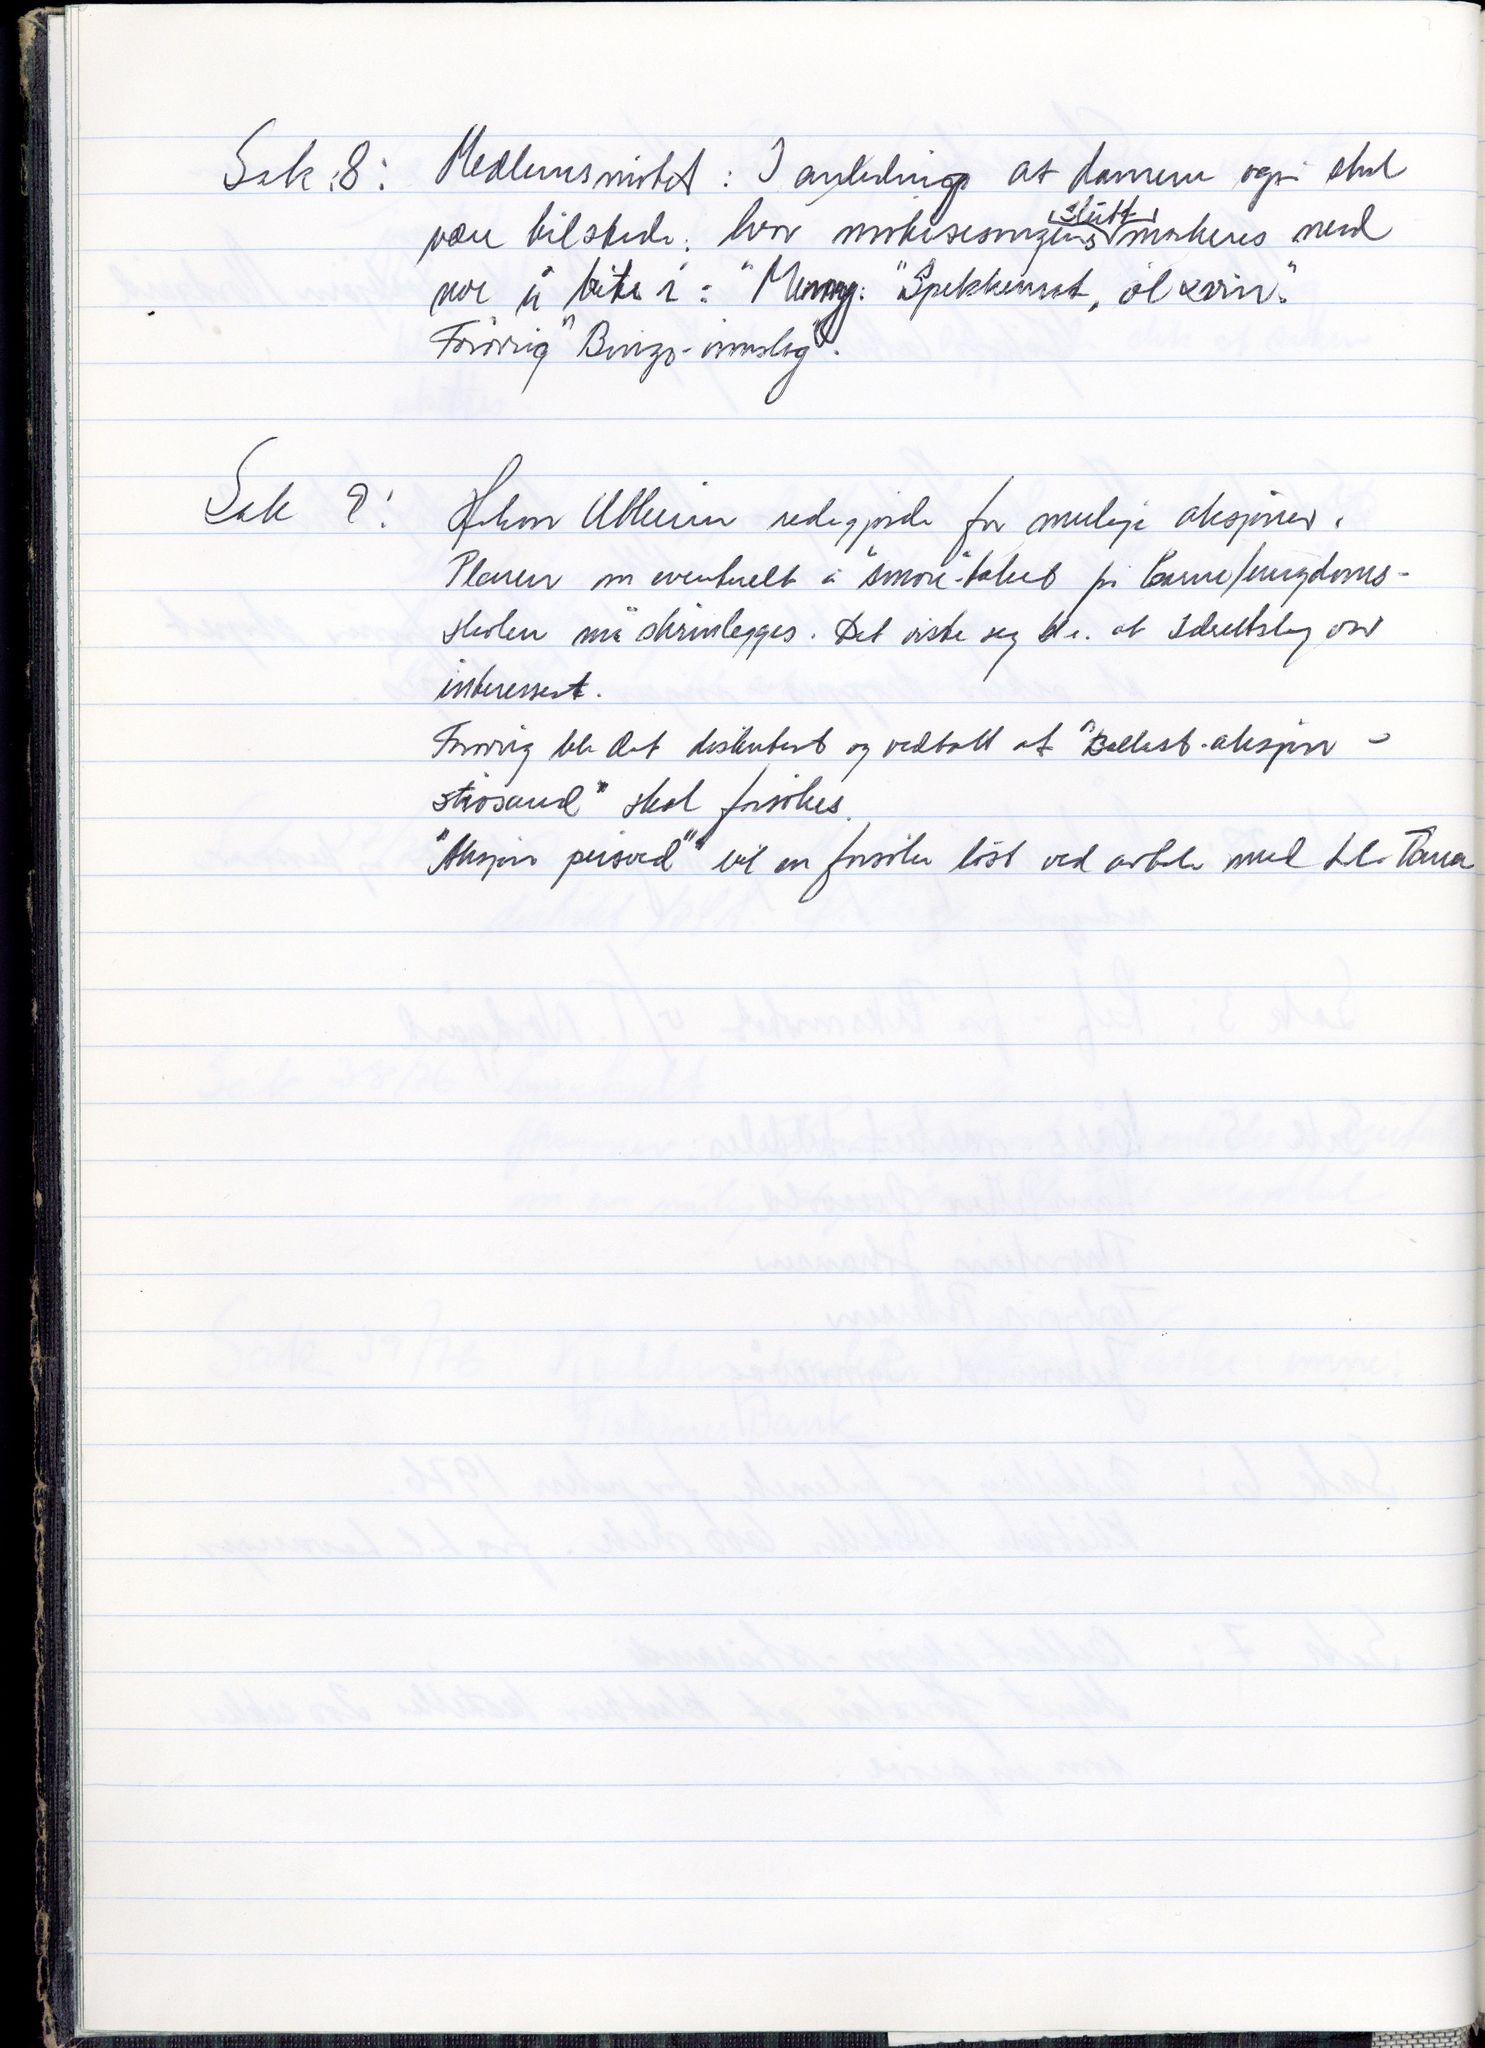 Sak: 8: Medlemsmötet: I anledning at damene også skal
være tilstede, hvor mötesesongens slutt markeres med
noe å bite i: "Meny: "Spekkemat, öl & vin."
Forövrig "Bingo-innslag".
Sak 9: Håkon redegjorde for mulige aksjoner.
Planen om eventuelt å "smöre" taket på Barne/ungdoms-
skolen må skrinlegges. Det viste seg bl.a. at Idrettslag var
interessert.
Forövrig ble det diskutert og vedtatt at "Ballast-aksjon -
strösand" skal forsökes.
"Aksjon peisved" vil en forsöke löst ved avtale med L.C. Tana